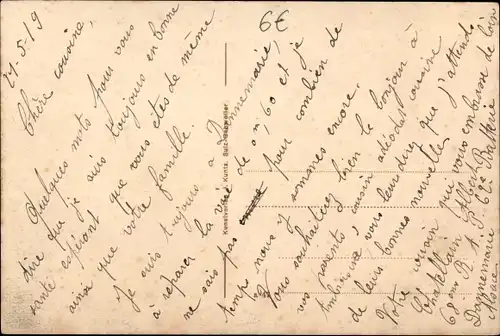 6€
27-5-19
Chère cousine,
Quelques mots pour vous
dire que je suis toujours en bonne
santé espérant que vous êtes de même
ainsi que votre famille.
Je suis toujours à Dannemarie,
à réparer la voie de 0m,60 et je
ne sais pas pour combien de
temps nous y sommes encore.
Vous souhaiterez bien le bonjour à
vos parents, cousin cousine
Ambroise, vous leur direz que j'attends
de leurs bonnes nouvelles.
Votre cousin qui vous embrasse de loin
Chatellain Albert
68ème R.A.P. 62e Batterie
Dannemarie
Alsace
Kunstverlag Kuntz, Sulz-Sennweiler